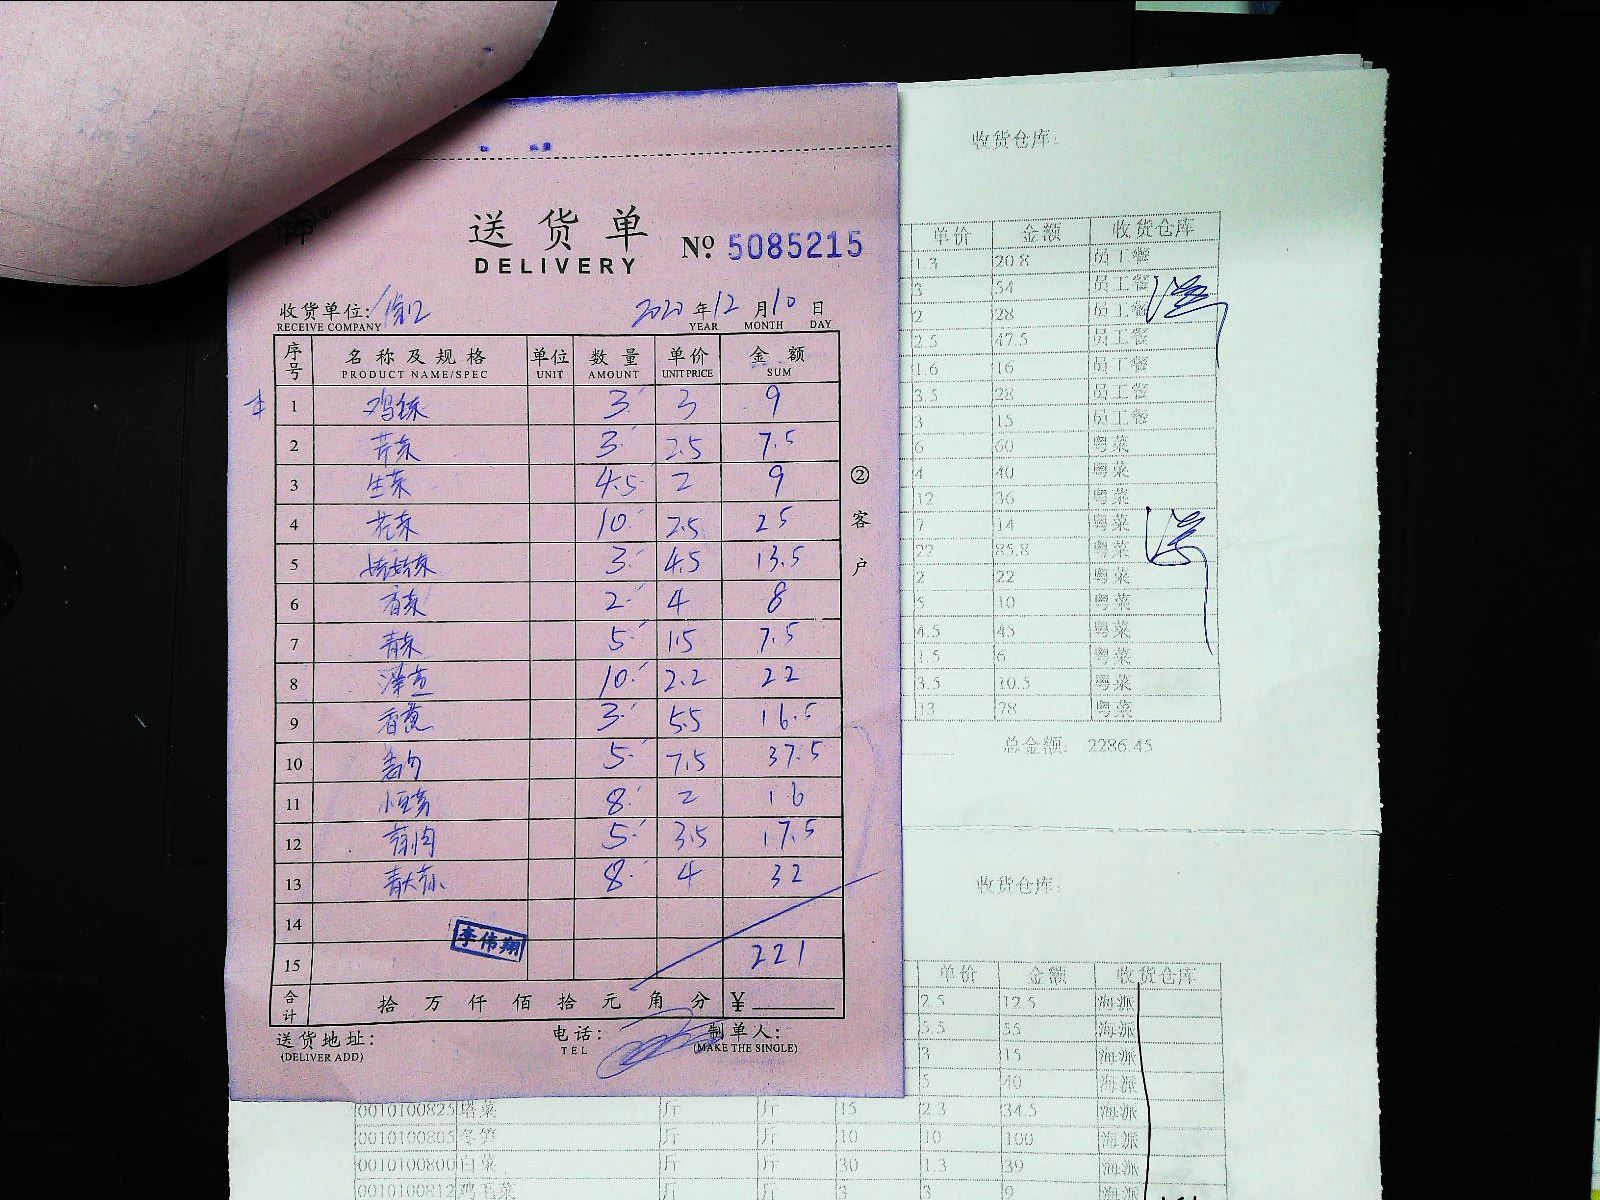 送货单
DELIVERY
№ 5085215
收货单位:
RECEIVE COMPANY
2022 年 12 月 10 日
YEAR MONTH DAY
序号 名称及规格 单位 数量 单价 金额
PRODUCT NAME/SPEC UNIT AMOUNT UNIT PRICE SUM
1 3 3 9
2 芹菜 3 2.5 7.5
3 生菜 4.5 2 9
4 花菜 10 2.5 25
5 娃娃菜 3 4.5 13.5
6 香菜 2 4 8
7 青菜 5 1.5 7.5
8 10 2.2 22
9 3 5.5 16.5
10 5 7.5 37.5
11 8 2 16
12 5 3.5 17.5
13 8 4 32
14
李伟翔
15 221
合计 拾 万 仟 佰 拾 元 角 分 ¥
送货地址: 电话: 制单人:
(DELIVER ADD) TEL (MAKE THE SINGLE)
② 客户
收货仓库:
单价 金额 收货仓库
1.3 20.8 员工餐
3 54 员工餐
2 28 员工餐
2.5 47.5 员工餐
1.6 16 员工餐
3.5 28 员工餐
3 15 员工餐
6 60 粤菜
4 40 粤菜
12 36 粤菜
7 14 粤菜
22 85.8 粤菜
2 22 粤菜
5 10 粤菜
4.5 45 粤菜
1.5 6 粤菜
3.5 10.5 粤菜
13 78 粤菜
总金额: 2286.45
收货仓库:
单价 金额 收货仓库
2.5 12.5 海派
5.5 55 海派
3 15 海派
5 40 海派
0010100825 塔菜 斤 斤 15 2.3 34.5 海派
0010100805 冬笋 斤 斤 10 10 100 海派
0010100800 白菜 斤 斤 30 1.3 39 海派
0010100812 鸡毛菜 斤 斤 3 3 9 海派